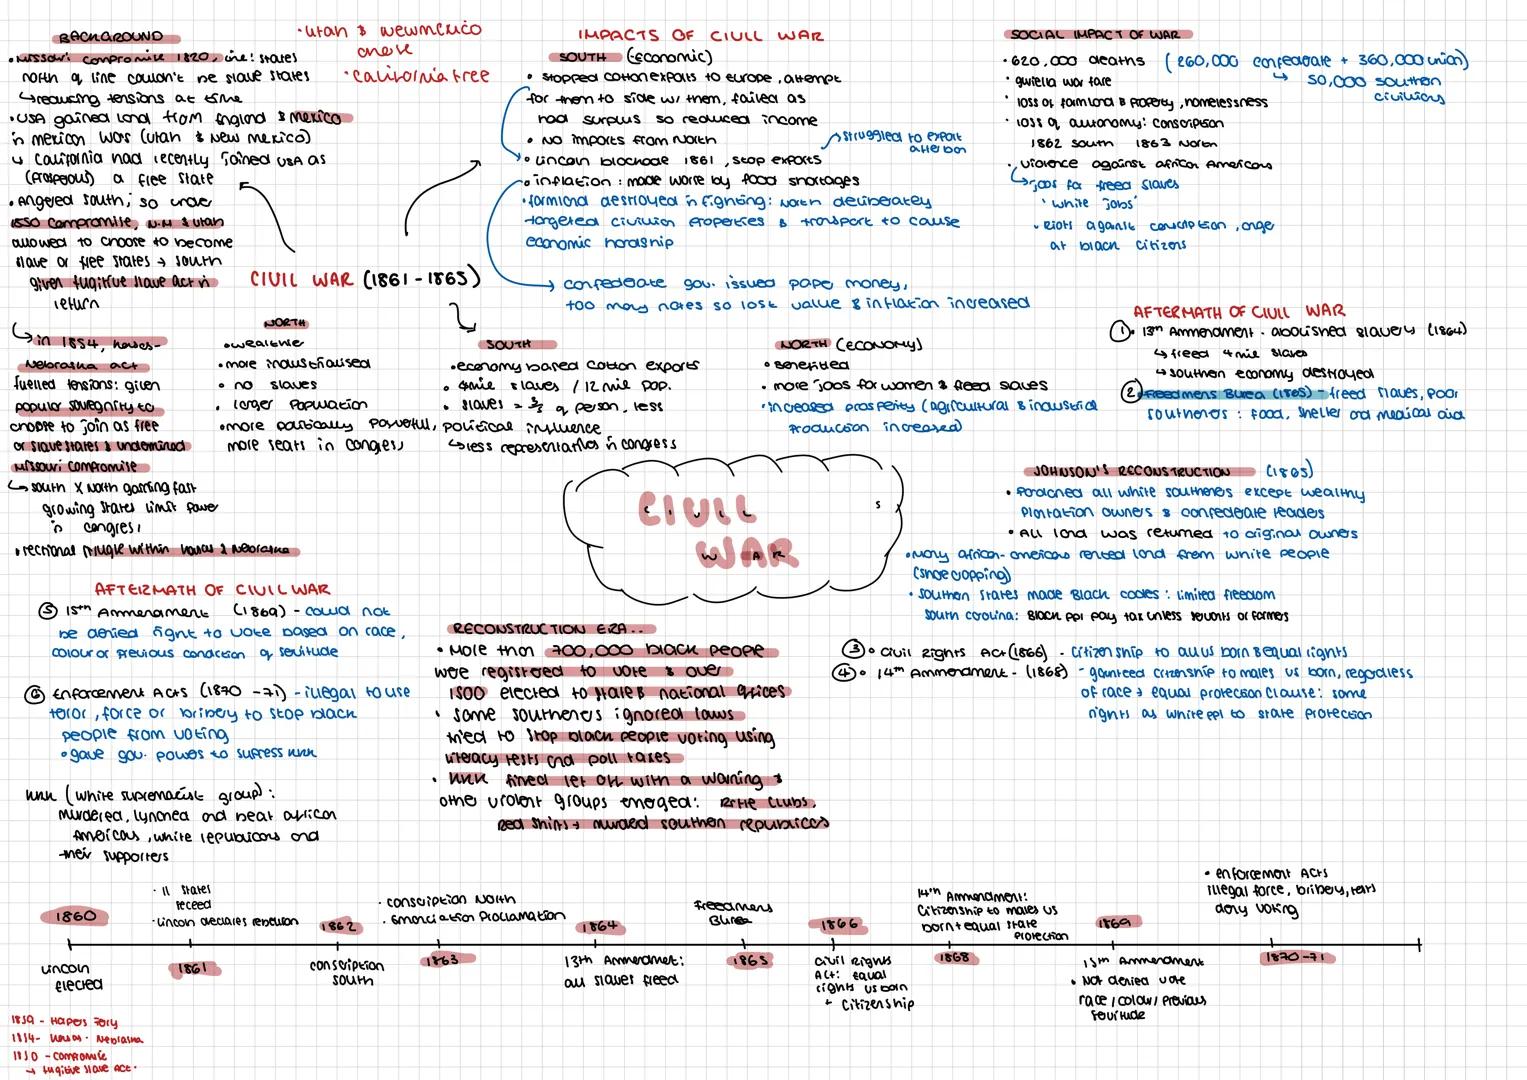 BACKGROUND
• Missouri compromise 1820, line: states
north of line couldn't be slave states
↳ reducing tensions at time
• USA gained land from England & Mexico
in mexican war (utah & New Mexico)
↳ California had recently joined USA as
(proposed) a free state
• Angered south, so under
1850 Compromise, N.M & Utah
allowed to choose to become
slave or free states → south
given fugitive slave Act in
return
↳ in 1854, Kansas-
Nebraska act
fuelled tensions: given
popular sovereignty to
choose to join as free
or slave states & undermined
Missouri compromise
↳ south X North gaining fast
growing states limit power
in congress
• sectional struggle within Kansas & Nebraska
• Utah & New Mexico
chose
• California free
CIVIL WAR (1861-1865)
NORTH
• wealthier
• more industrialised
• no slaves
• larger population
• more politically powerful,
more seats in congress
SOUTH
• economy based cotton exports
• 4mil slaves / 12 mil pop.
• slaves = 3/5 of person, less
political influence
↳ less representatives in congress
IMPACTS OF CIVIL WAR
SOUTH (economic)
• stopped cotton exports to europe, attempt
for them to side w/ them, failed as
had surplus so reduced income
• No imports from North
• Lincoln blockade 1861, stop exports
→ struggled to export
after
• inflation: made worse by food shortages
• farmland destroyed in fighting: North deliberately
targeted civilian properties & transport to cause
economic hardship
→ confederate gov. issued paper money,
too many notes so lost value & inflation increased
NORTH (economy)
• benefitted
• more jobs for women & freed slaves
• increased prosperity (agricultural & industrial
production increased)
SOCIAL IMPACT OF WAR
• 620,000 deaths (260,000 confederate + 360,000 union)
↳ 50,000 southern
civilians
• guerilla warfare
• loss of farmland & property, homelessness
• loss of autonomy: conscription
1862 South 1863 North
• violence against african Americans
↳ jobs for freed slaves
'white jobs'
• Riots against conscription, anger
at black citizens
AFTERMATH OF CIVIL WAR
① • 13th Ammendment - abolished slavery (1864)
↳ freed 4 mil slaves
↳ southern economy destroyed
② • Freedmens Bureau (1865) - freed slaves, poor
southerners: food, shelter and medical aid
JOHNSON'S RECONSTRUCTION (1865)
• Pardoned all white southerners except wealthy
plantation owners & confederate leaders
• All land was returned to original owners
• Many african-americans rented land from white people
(sharecropping)
• southern states made Black codes: limited freedom
south carolina: Black ppl pay tax unless servants or farmers
③ • Civil Rights Act (1866) - citizenship to all us born & equal rights
④ • 14th Ammendment - (1868) - garunteed citizenship to males us born, regardless
of race → equal protection Clause: same
rights as white ppl to state protection
CIVIL
WAR
CIVIL S
WAR
AFTERMATH OF CIVIL WAR
⑤ 15th Ammendment (1869) - could not
be denied right to vote based on race,
colour or previous condition of servitude
⑥ Enforcement Acts (1870-71) - illegal to use
terror, force or bribery to stop black
people from voting
• gave gov. powers to supress KKK
KKK (white supremacist group):
murdered, lynched and beat african
Americans, white republicans and
their supporters
RECONSTRUCTION ERA..
• More than 700,000 black people
were registered to vote & over
1500 elected to state & national offices
• some southerners ignored laws
tried to stop black people voting using
literacy tests and poll taxes
• KKK fined let off with a warning &
other violent groups emerged: Rifle Clubs,
Red Shirts → murdered southern republicans
1860
Lincoln
elected
• 11 states
seceed
• Lincoln declares rebellion
1861
1862
conscription
south
• conscription North
• Emanciation Proclamation
1863
1864
13th Ammendment:
all slaves freed
Freedmens
Bureau
1865
1866
Civil Rights
Act: equal
rights us born
+ citizenship
14th Ammendment:
Citizenship to males US
born + equal state
protection
1868
1869
15th Ammendment
• Not denied vote
race/colour/previous
servitude
• enforcement Acts
illegal force, bribery, terror
deny voting
1870-71
1859 - Harpers Ferry
1854 - Kansas - Nebraska
1850 - compromise
→ fugitive slave Act.